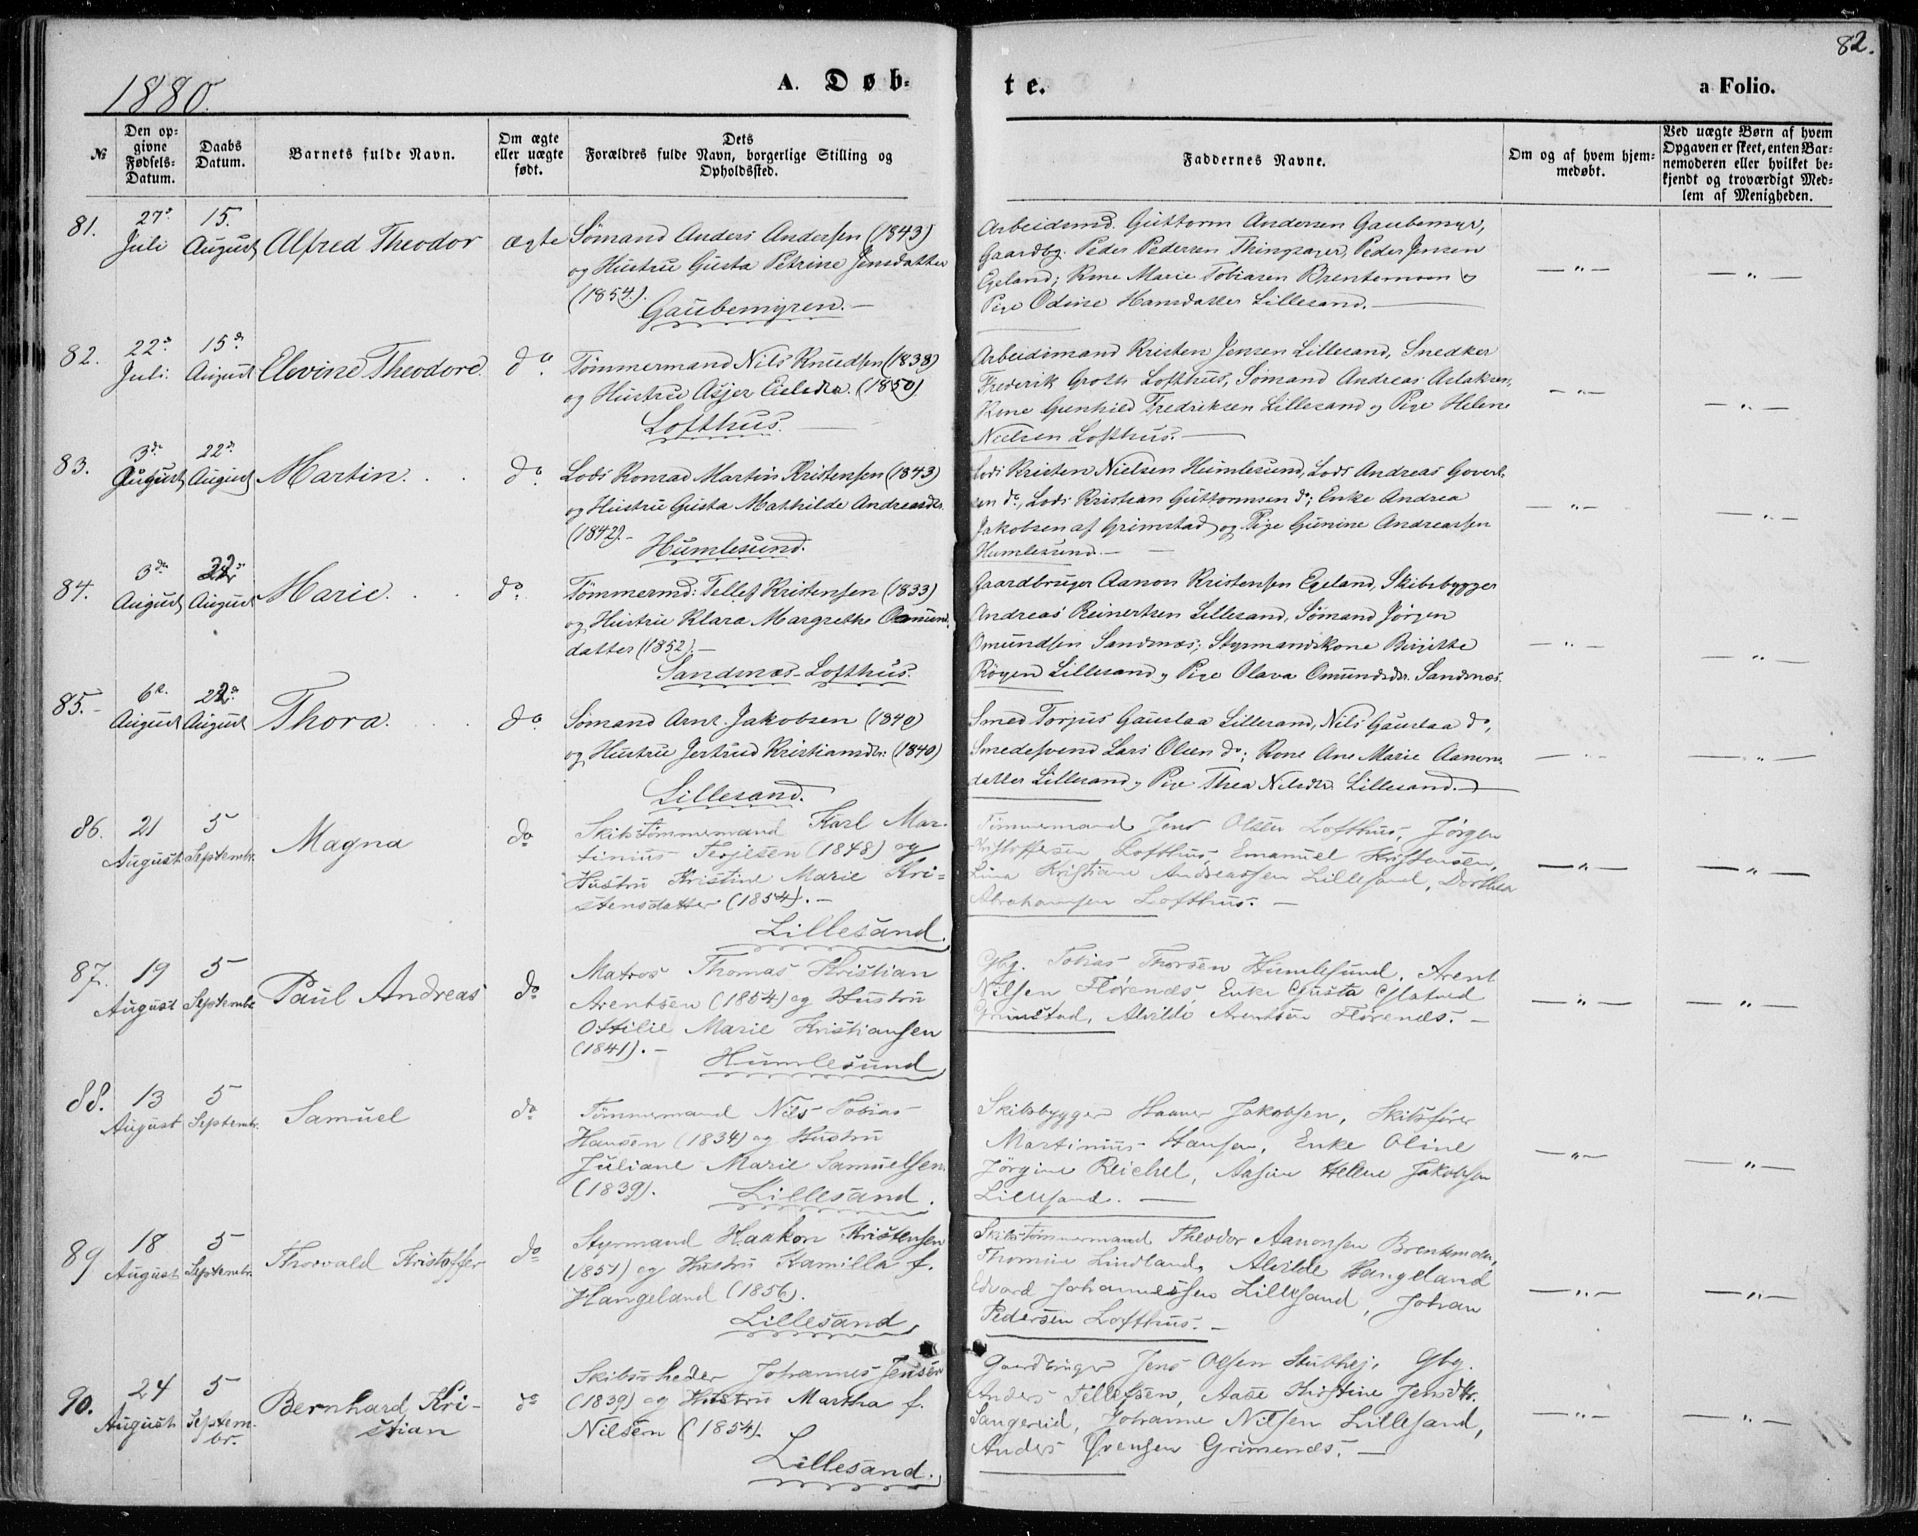 82.
1880.
A. Døb-
te.
a Folio.
№
Den op-
givne
Fødsels-
Datum.
Daabs
Datum.
Barnets fulde Navn.
Om ægte
eller uægte
født.
Dets
Forældres fulde Navn, borgerlige Stilling og
Opholdssted.
Faddernes Navne.
Om og af hvem hjem-
medøbt.
Ved uægte Børn af hvem
Opgaven er skeet, enten Bar-
nemoderen eller hvilket be-
kjendt og troværdigt Med-
lem af Menigheden.
81.
27de
Juli
15.
August
Alfred Theodor
ægte
Sømand Anders Andersen (1843)
og Hustru Gusta Petrine Jensdatter
(1854).
Gaubemyren.
Arbeidsmd. Guttorm Andersen Gaubemyr,
Gaardbg. Peder Pedersen Peder Jensen
Egeland; Kone Marie Tobiasen Brentemoen &
Pige Odine Hansdatter Lillesand.
— " —
— " —
82.
22de
Juli
15de
August
Elevine Theodore
do
Tømmermand Nils Knudsen (1838)
og Hustru Asjer (1850)
Lofthus.
Arbeidsmand Kristen Jensen Lillesand, Snedker
Frederik Groth Lofthus, Sømand Andreas Aslaksen,
Kone Gunhild Fredriksen Lillesand & Pige Helene
Nielsen Lofthus.
— " —
— " —
83.
3de
August
22de
August
Martin
do
Lods Konrad Martin Kristensen (1843)
og Hustru Gusta Mathilde Andreasdtr.
(1842).
Humlesund.
Lods Kristen Nielsen Humlesund, Lods Andreas Govert-
sen do, Lods Kristian Guttormsen do; Enke Andrea
Jakobsen af Grimstad og Pige Gunine Andreassen
Humlesund.
— " —
— " —
84.
3de
August
22de
August
Marie
do
Tømmermd: Tellef Kristensen (1833)
og Hustru Klara Margrethe Omund-
datter (1852).
Sandsnæs-Lofthus.
Gaardbruger Aanon Kristensen Egeland, Skibsbygger
Andreas Reinertsen Lillesand, Sømand Jørgen
Omundsen Sandsnæs; Styrmandskone Birgitte
Røyen Lillesand & Pige Olava Omundsdtr. Sandsnæs.
— " —
— " —
85.
6te
August
22de
August
Thora
do
Sømand Arnt Jakobsen (1840)
og Hustru Jertrud Kristiansdtr. (1840)
Lillesand.
Smed Torjus Gauslaa Lillesand, Nils Gauslaa do,
Smedesvend Lars Olsen do; Kone Ane Marie Aanons-
datter Lillesand & Pige Thea Nilsdtr. Lillesand.
— " —
— " —
86.
21
August
5
Septembr.
Magna
do
Skibstømmermand Karl Mar-
tinius Terjesen (1848) og
Hustru Kristine Marie Kri-
stensdatter (1854).
Lillesand.
Tømmermand Jens Olsen Lofthus, Jørgen
Kristoffersen Lofthus, Emanuel Kristensen,
Lina Kristiane Andreassen Lillesand, Dorthea
Abrahamsen Lofthus.
— " —
— " —
87.
19
August
5
Septembr.
Paul Andreas
do
Matros Thomas Kristian
Arentsen (1854) og Hustru
Ottilie Marie Kristiansen
(1841).
Humlesund
Gbg. Tobias Thorsen Humlesund, Arent
Nilsen Florenæs, Enke Gusta
Grimstad, Alvilde Arentsen Florenæs.
— " —
— " —
88.
13
August
5
Septembr.
Samuel
do
Tømmermand Nils Tobias
Hansen (1834) og Hustru
Juliane Marie Samuelsen
(1839).
Lillesand.
Skibsbygger Jakobsen, Skibsfører
Martinius Hansen, Enke Oline
Jørgine Reichel, Aasine Helene Jakobsen
Lillesand.
— " —
— " —
89
18
August
5
Septembr.
Thorvald Kristoffer
do
Styrmand Haakon Kristensen
(1851) og Hustru Kamilla f.
Hangeland (1856).
Lillesand
Skibstømmermand Theodor Aanonsen Brentemoen,
Thomine Lindland, Alvilde Hangeland
Edvard Johannessen Lillesand, Johan
Pedersen Lofthus.
— " —
— " —
90.
24
August
5
Septem-
br.
Bernhard Kri-
stian
do
Skibsrheder Johannes Jensen
(1839) og Hustru Martha f.
Nilsen (1854).
Lillesand.
Gaardbruger Jens Olsen Gbg.
Anders Tellefsen, Aase Kirstine Jensdtr.
Sangereid, Johanne Nilsen Lillesand,
Anders Grimenæs.
— " —
— " —